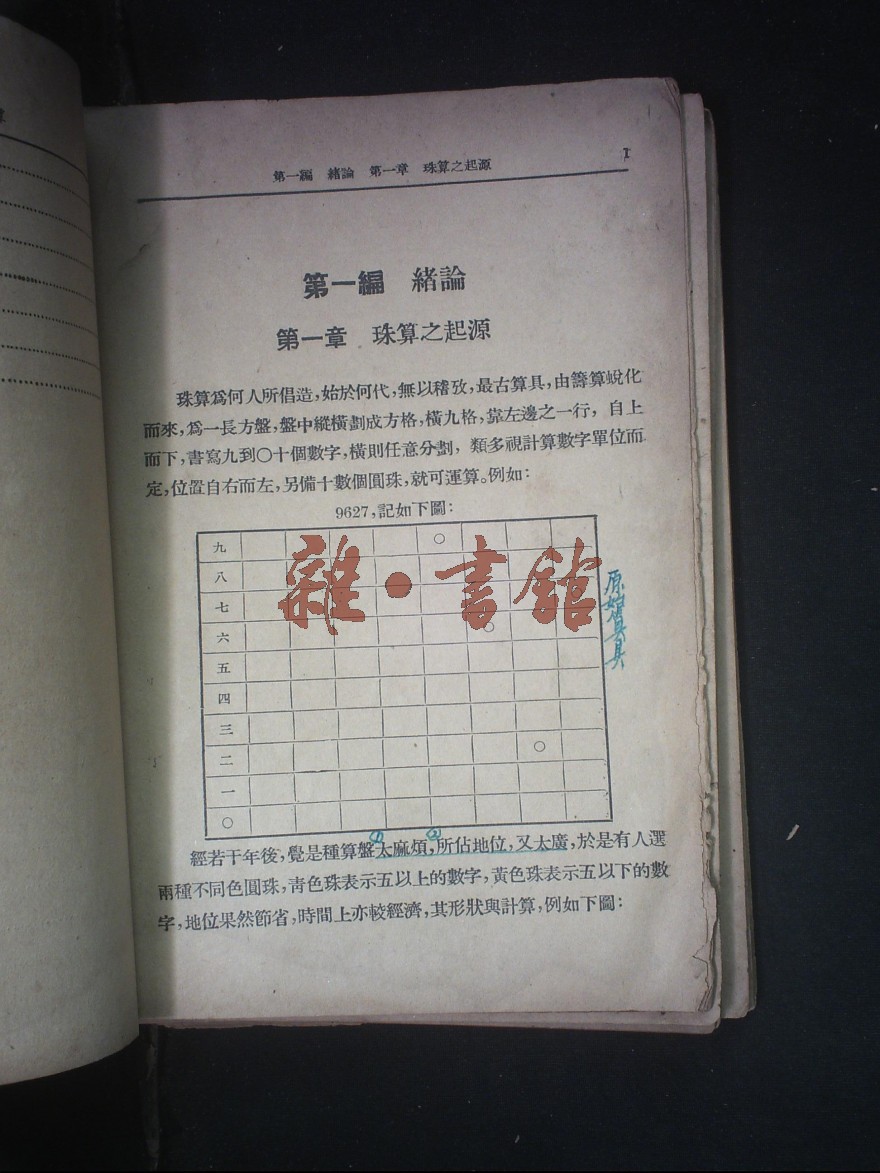 第一編　緒論　第一章　珠算之起源
1
第一編　緒論
第一章　珠算之起源
珠算爲何人所倡造，始於何代，無以稽攷，最古算具，由籌算蛻化
而來，爲一長方盤，盤中縱橫劃成方格，橫九格，靠左邊之一行，自上
而下，書寫九到〇十個數字，橫則任意分劃，類多視計算數字單位而
定，位置自右而左，另備十數個圓珠，就可運算。例如：
9627，記如下圖：
九
八
七
六
五
四
三
二
一
〇
雜·書館
原始算具
① ②
經若干年後，覺是種算盤太麻煩，所佔地位，又太廣，於是有人選
兩種不同色圓珠，靑色珠表示五以上的數字，黃色珠表示五以下的數
字，地位果然節省，時間上亦較經濟，其形狀與計算，例如下圖：